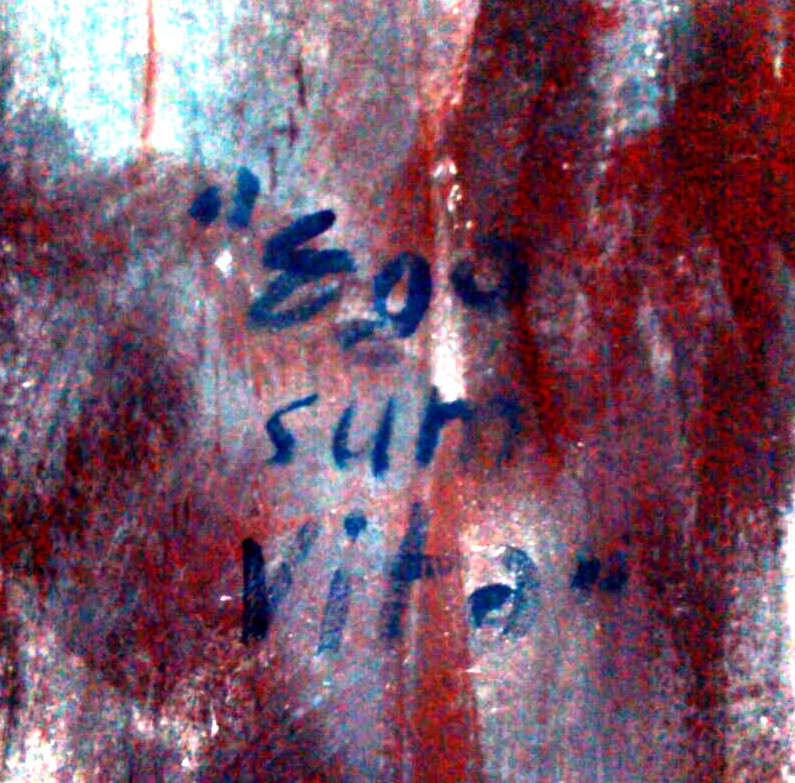 "Ego
sum
Vita"